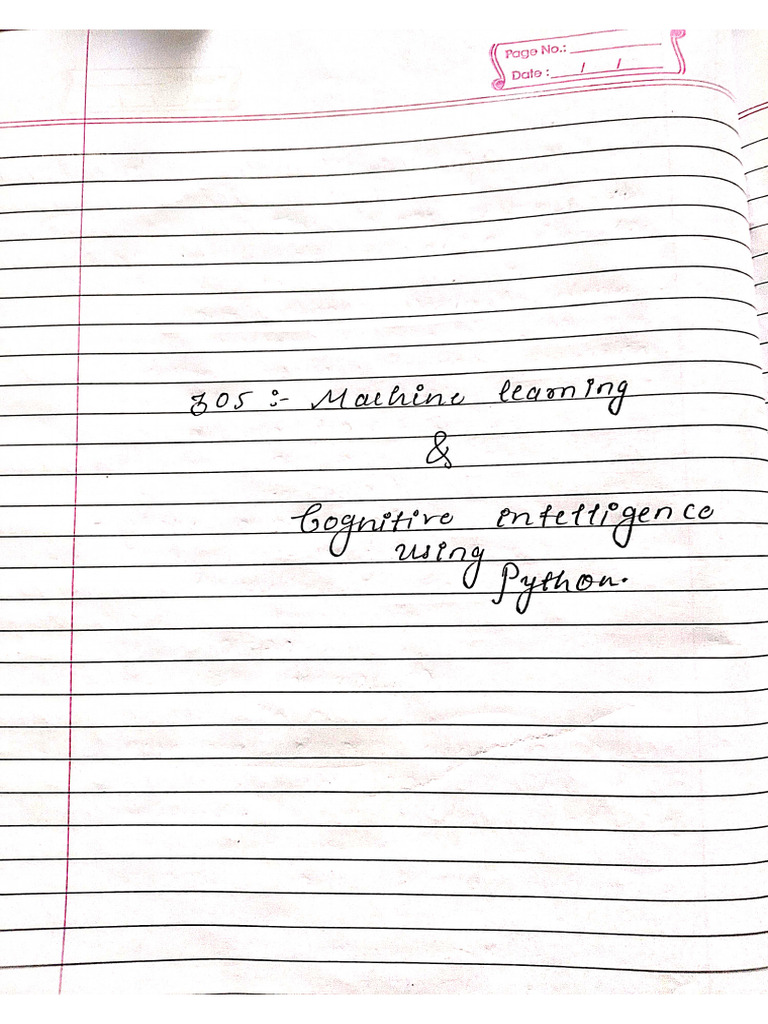 Page No.:
Date : / /
305 :- Machine learning
&
Cognitive intelligence
using
Python.